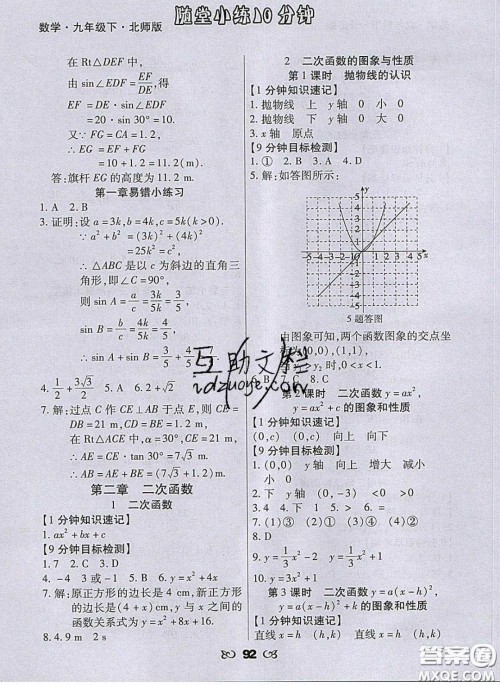 数学·九年级下·北师版
随堂小练10分钟
在Rt△DEF中,
由sin∠EDF=EF/DE,得
EF=DE·sin∠EDF
=20·sin 30°=10.
又∵FG=CA=1.2,
∴EG=EF+FG
=10+1.2=11.2(m).
答:旗杆EG的高度为11.2 m.
第一章易错小练习
1. A 2. B
3. 证明:设a=3k,b=4k,c=5k(k>0).
∵a²+b²=(3k)²+(4k)²
=25k²=c²,
∴△ABC是以c为斜边的直角三
角形,即∠C=90°,
则sin A=a/c=3k/5k=3/5,
sin B=b/c=4k/5k=4/5,
∴sin A+sin B=3/5+4/5=7/5.
4. 1/2+3√3/2 5. A 6. 2+√2
7. 解:过点C作CE⊥AB于点E,则CE=
DB=21 m,CD=BE.
在Rt△ACE中,α=30°,CE=21 m,
∴AE=CE·tan 30°=7√3 m.
∴AB=AE+BE=(7√3+1.2)m.
第二章 二次函数
1 二次函数
【1分钟知识速记】
1. ax²+bx+c
【9分钟目标检测】
1. 7 2. C 3. D
4. -4 3或-1 5. B 6. y=x²+4x
7. 解:原正方形的边长是4 cm,新正方形
的边长是(4+x)cm,y与x之间的
函数关系式为y=x²+8x+16.
8. 4.9 m 2 s
2 二次函数的图象与性质
第1课时 抛物线的认识
【1分钟知识速记】
1. 抛物线 上 y轴 小 0
2. 抛物线 下 y轴 大 0
3. x轴 原点
【9分钟目标检测】
1. ① 2. B 3. A 4. D
5. 解:如答图所示:
5题答图
由图象可知,两个函数图象的交点坐
(0,0),(1,1),
y₂时,0<x<1.
B 7. C 8. C
第2课时 二次函数y=ax²,
y=ax²+c的图象和性质
【1分钟知识速记】
(0,c) 向上 向下
【9分钟目标检测】
1. (0,6) y轴 向上 增大 减小
小 6
2. 下 y轴 (0,-3) <0 >0
3. > 4. D 5. B 6. D
7. (1)③ (2)① (3)②
8. D
9. y=1/3x²-2 y=1/3x²+1
10. y=3x²-4
第3课时 二次函数y=a(x-h)²,
y=a(x-h)²+k的图象和性质
【1分钟知识速记】
直线x=h (h,k) 直线x=h (h,k)
92
互助文栏
答案圈
MXQE.COM